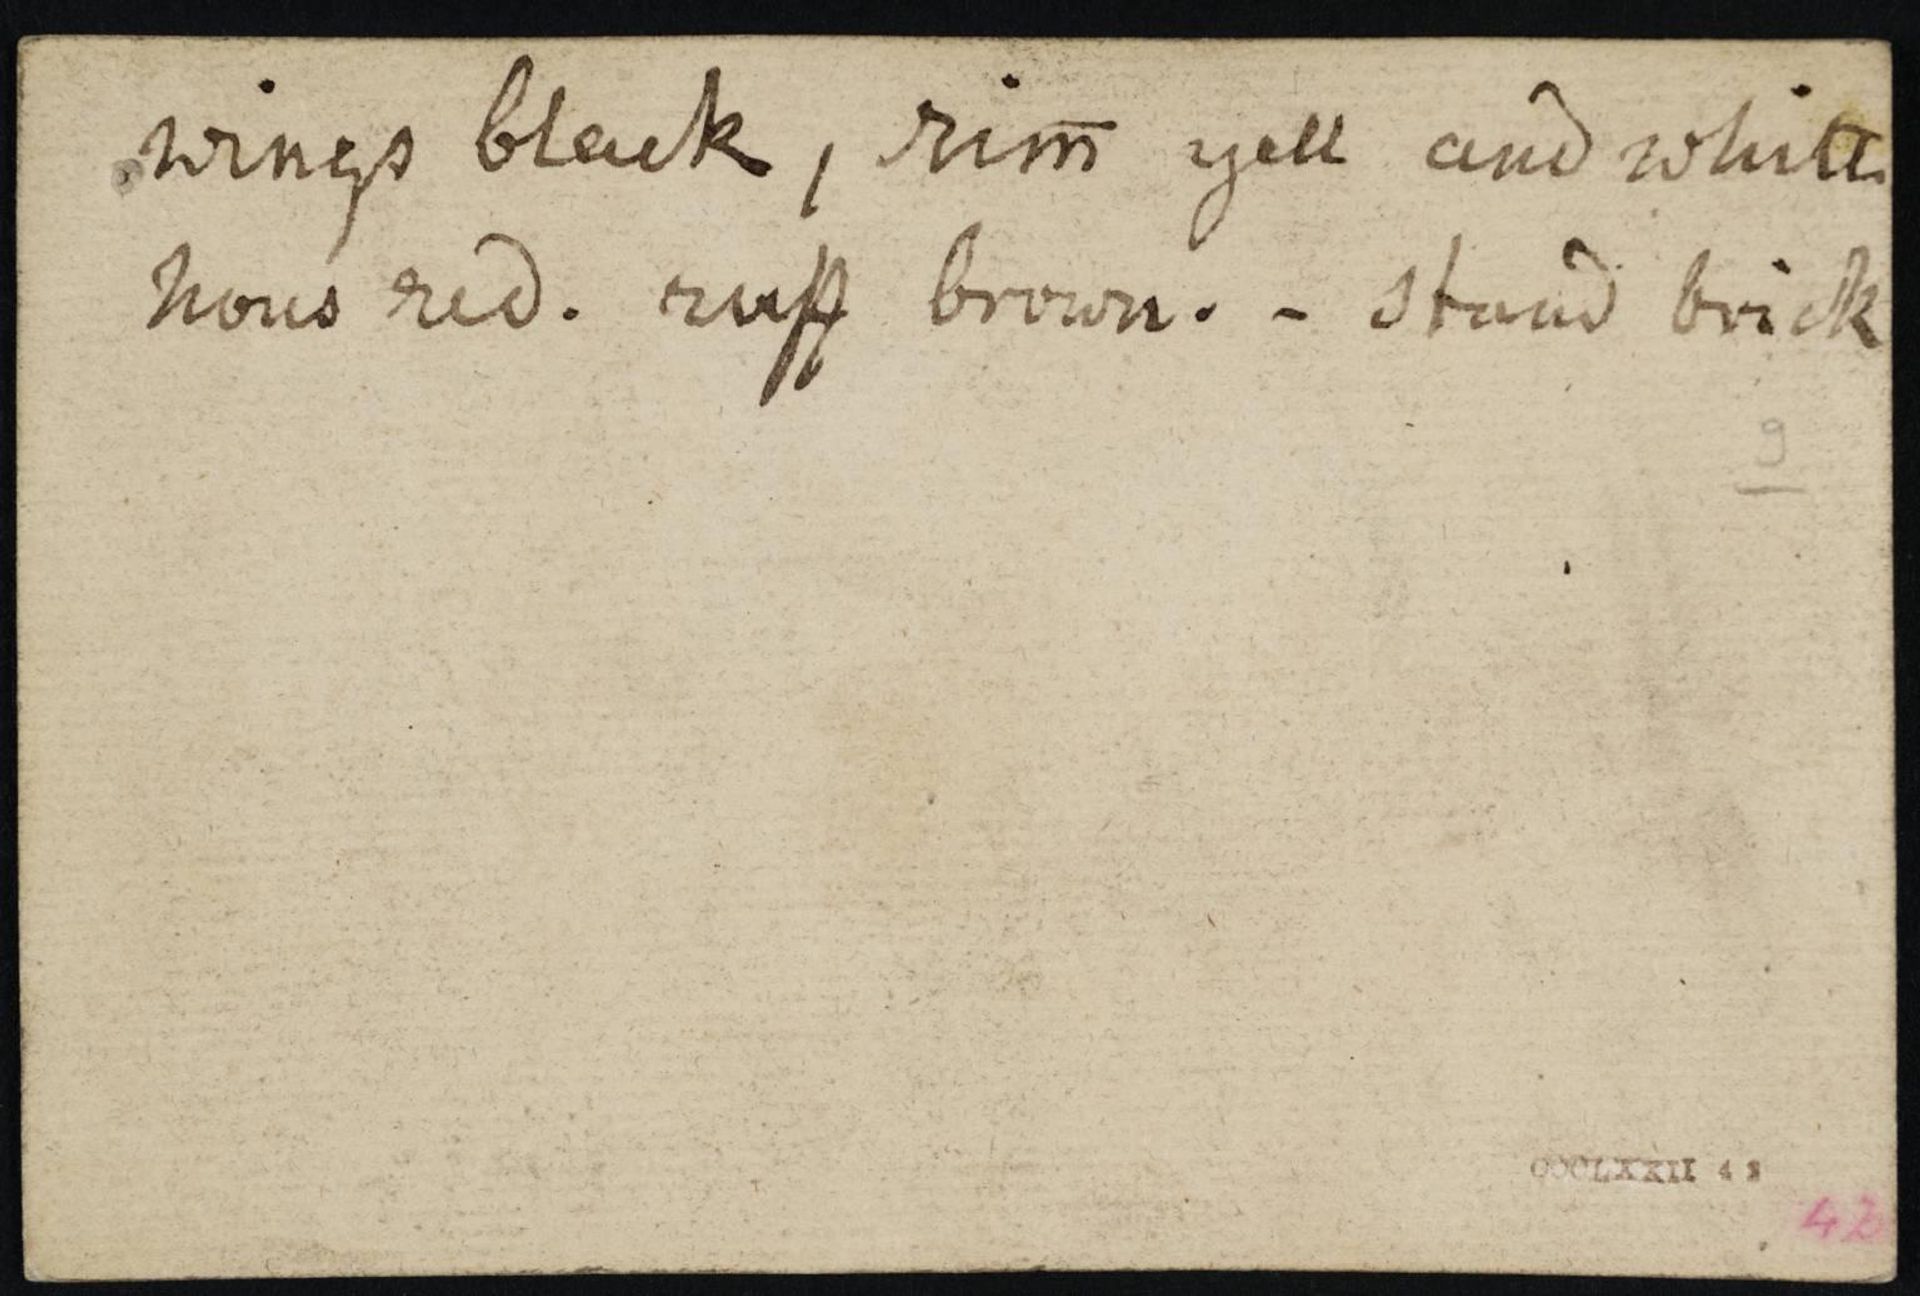 wings black, rim̄ yell and white
hous red. ruff brown. - stand brick
9
CCCLXXII 42
42